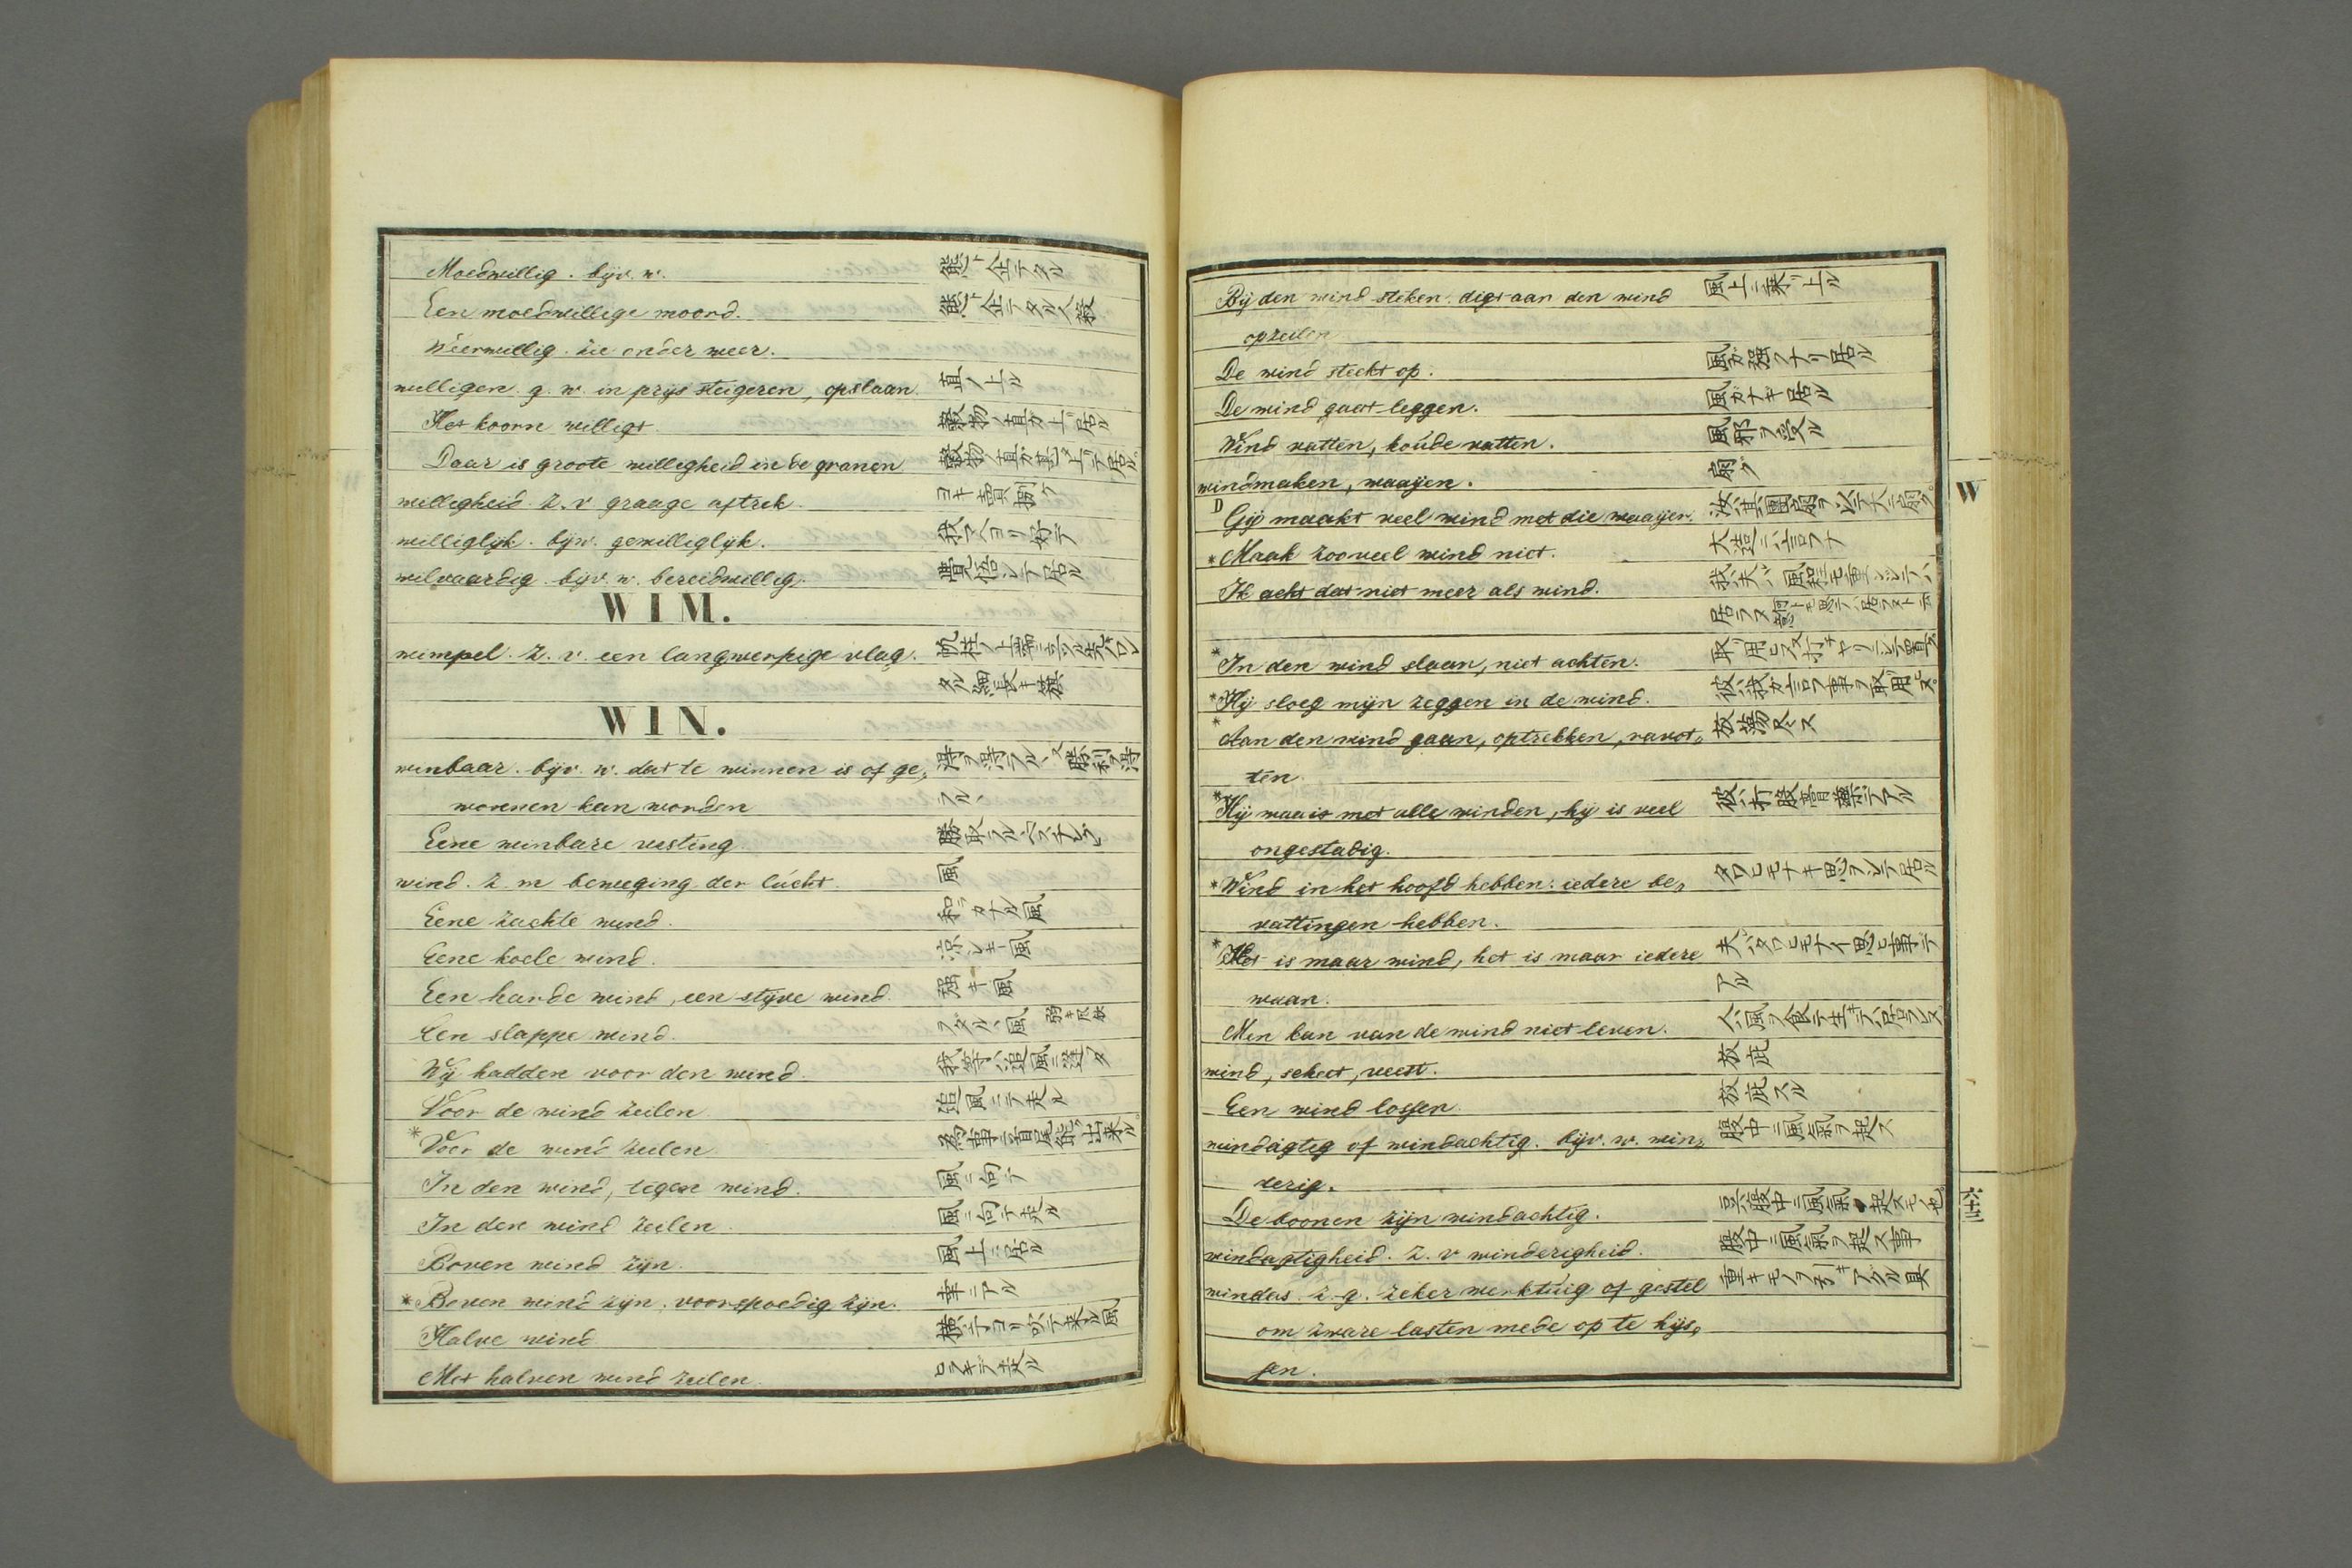 Moedwillig. bijv. w. 態ト企テタル
Een moedwillige moord. 態ト企テタル人殺
Weerwillig. zie onder weer.
willigen. g. w. in prijs steigeren, opslaan. 直ノ上ル
Het koorn willigt. 穀物ノ直カ上リ居ル
Daar is groote willigheid in de granen 穀物ノ直カ甚タ上リテ居ル
willigheid. z. v graage aftrek. ヨキ賣捌ケ
williglijk. bijw. gewilliglijk. 我マヘヨリ好テ
wilvaardig. bijv. w. bereidwillig. 覚悟シテ居ル
WIM.
wimpel. z. v. een langwerpige vlag. 帆柱ノ上
タル細長キ籏
WIN.
winbaar. bijv. w. dat te winnen is of ge„
wonnen kan worden
Eene winbare vesting 勝取ラル
wind. z. m beweging der lucht. 風
Eene zachte wind. 和カナル風
Eene koele wind. 涼シキ風
Een harde wind, een stijve wind. 强キ風
Een slappe wind.
Wij hadden voor den wind. 我等ハ追風ニ逢フタ
Voor de wind zeilen. 追風ニテ走ル
*Voor de wind zeilen. 為事ニ首尾能ク出来ル
In den wind, tegen wind. 風ニ向テ
In den wind zeilen. 風ニ向テ走ル
Boven wind zijn. 風上ニ居ル
*Boven wind zijn. voorspoedig zijn. 幸ニアル
Halve wind 横手ヨリ吹テ来ル風
Met halven wind zeilen. ヒラキテ走ル
Bij den wind steken. digt aan den wind 風上ニ乗リ上ル
opzeilen
De wind steekt op. 風カ强クナリ居ル
De wind gaat leggen. 風カナキ居ル
Wind vatten, koude vatten. 風邪ヲ受ル
windmaken, waaijen. 扇ク
D Gij maakt veel wind met die waaijer. 汝ハ其團扇ヲ以テ大ニ扇ク
*Maak zooveel wind niet. 大造ニ言フナ
Ik acht dat niet meer als wind. 我ハ夫ハ風程モ重ンシテハ
居ラヌ
*In den wind slaan, niet achten. 取リ用ヒス打チヤリニシテ置ク
*Hij sloeg mijn zeggen in de wind. 彼ハ我カ言フ事ヲ取用ヒヌ
*Aan den wind gaan, optrekken, ravot„ 放蕩スル
ten.
*Hij waait met alle winden, hij is veel 彼ハ打股膏藥テアル
ongestadig.
*Wind in het hoofd hebben: iedere be„ タワヒモナキ思ヲシテ居ル
vattingen hebben.
*Het is maar wind, het is maar iedere 夫ハタワヒモナイ思ヒ事テ
waan. アル
Men kan van de wind niet leven. 人ハ風ヲ食テ生キテハ居ラレヌ
wind, scheet, veest. 放屁
Een wind lossen. 放屁スル
windagtig of windachtig. bijv. w. win„ 腹中ニ風氣ヲ起ス
derig.
De boonen zijn windachtig. 豆ハ腹中ニ風氣ヲ起スモノ也
windagtigheid. z. v winderigheid. 腹中ニ風氣ヲ起ス事
windas. z. g. zeker werktuig of gestel 重キモノヲ引キアクル具
om zware lasten mede op te hijs„
sen.
W
六十三